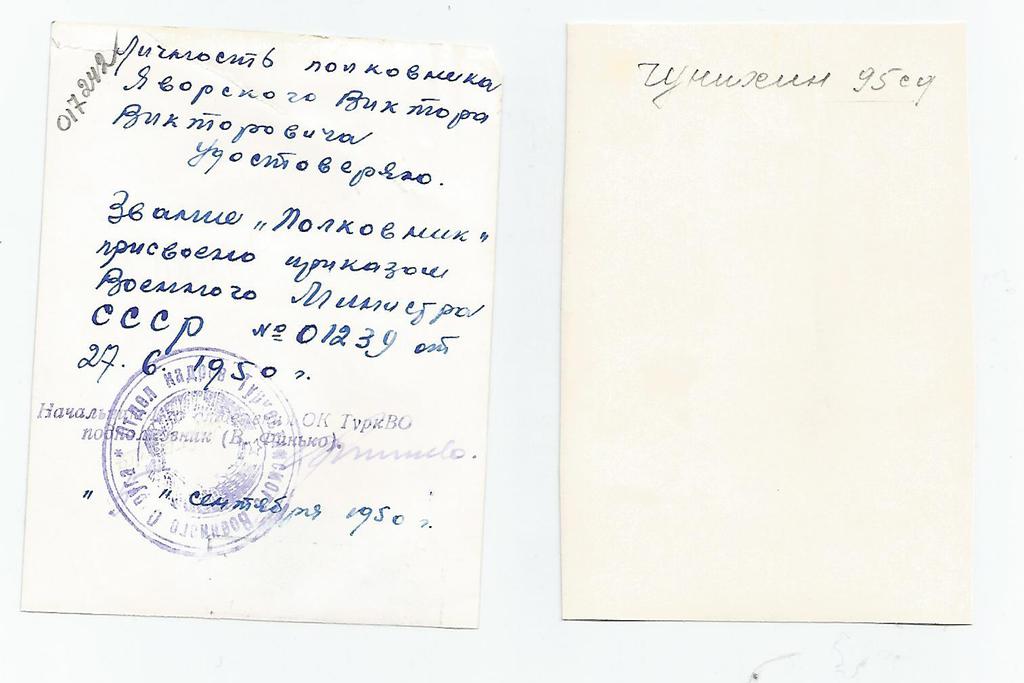 017242
Личность полковника
Яворского Виктора
Викторовича
удостоверяю.
Звание „Полковник"
присвоено приказом
Военного Министра
СССР № 01239 от
27. 6. 1950 г.
Отдел кадров Туркестанского Военного Округа *
ОК ТуркВО
подполковник (В. Финько).
" " сентября 1950 г.
Чунихин 95 сд